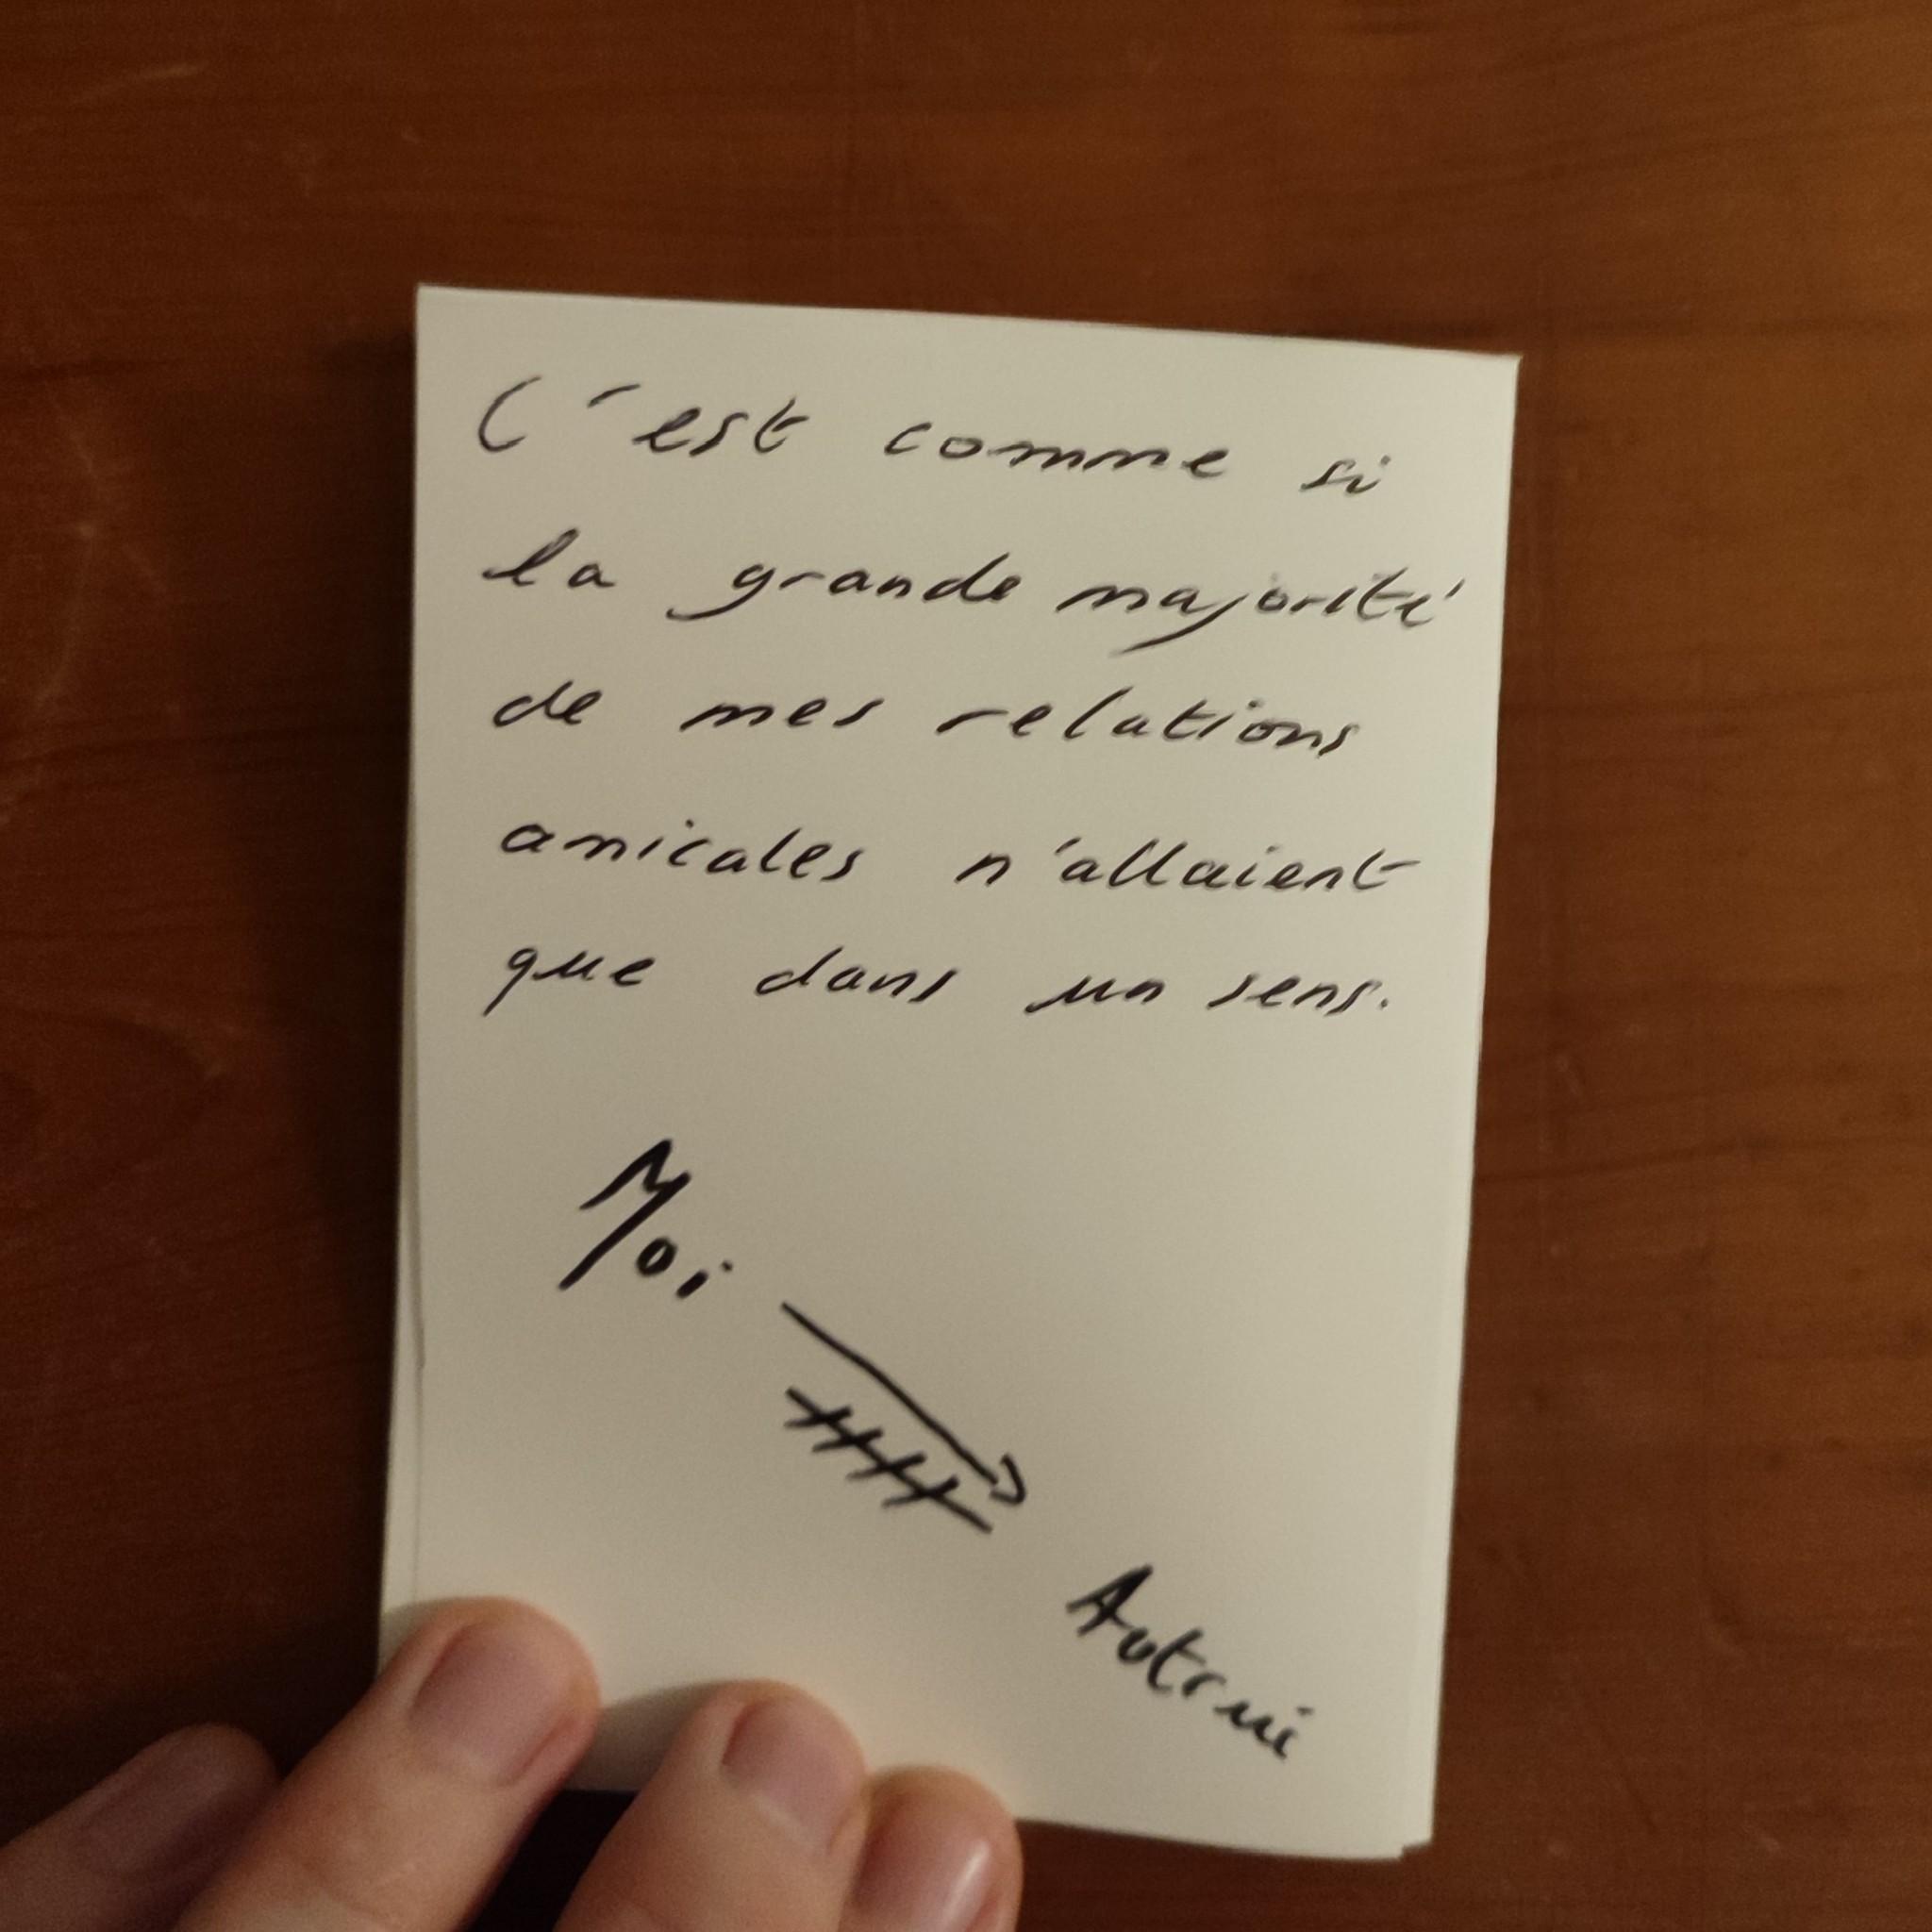 C'est comme si
la grande majorité
de mes relations
amicales n'allaient
que dans un sens.
Moi
Autrui